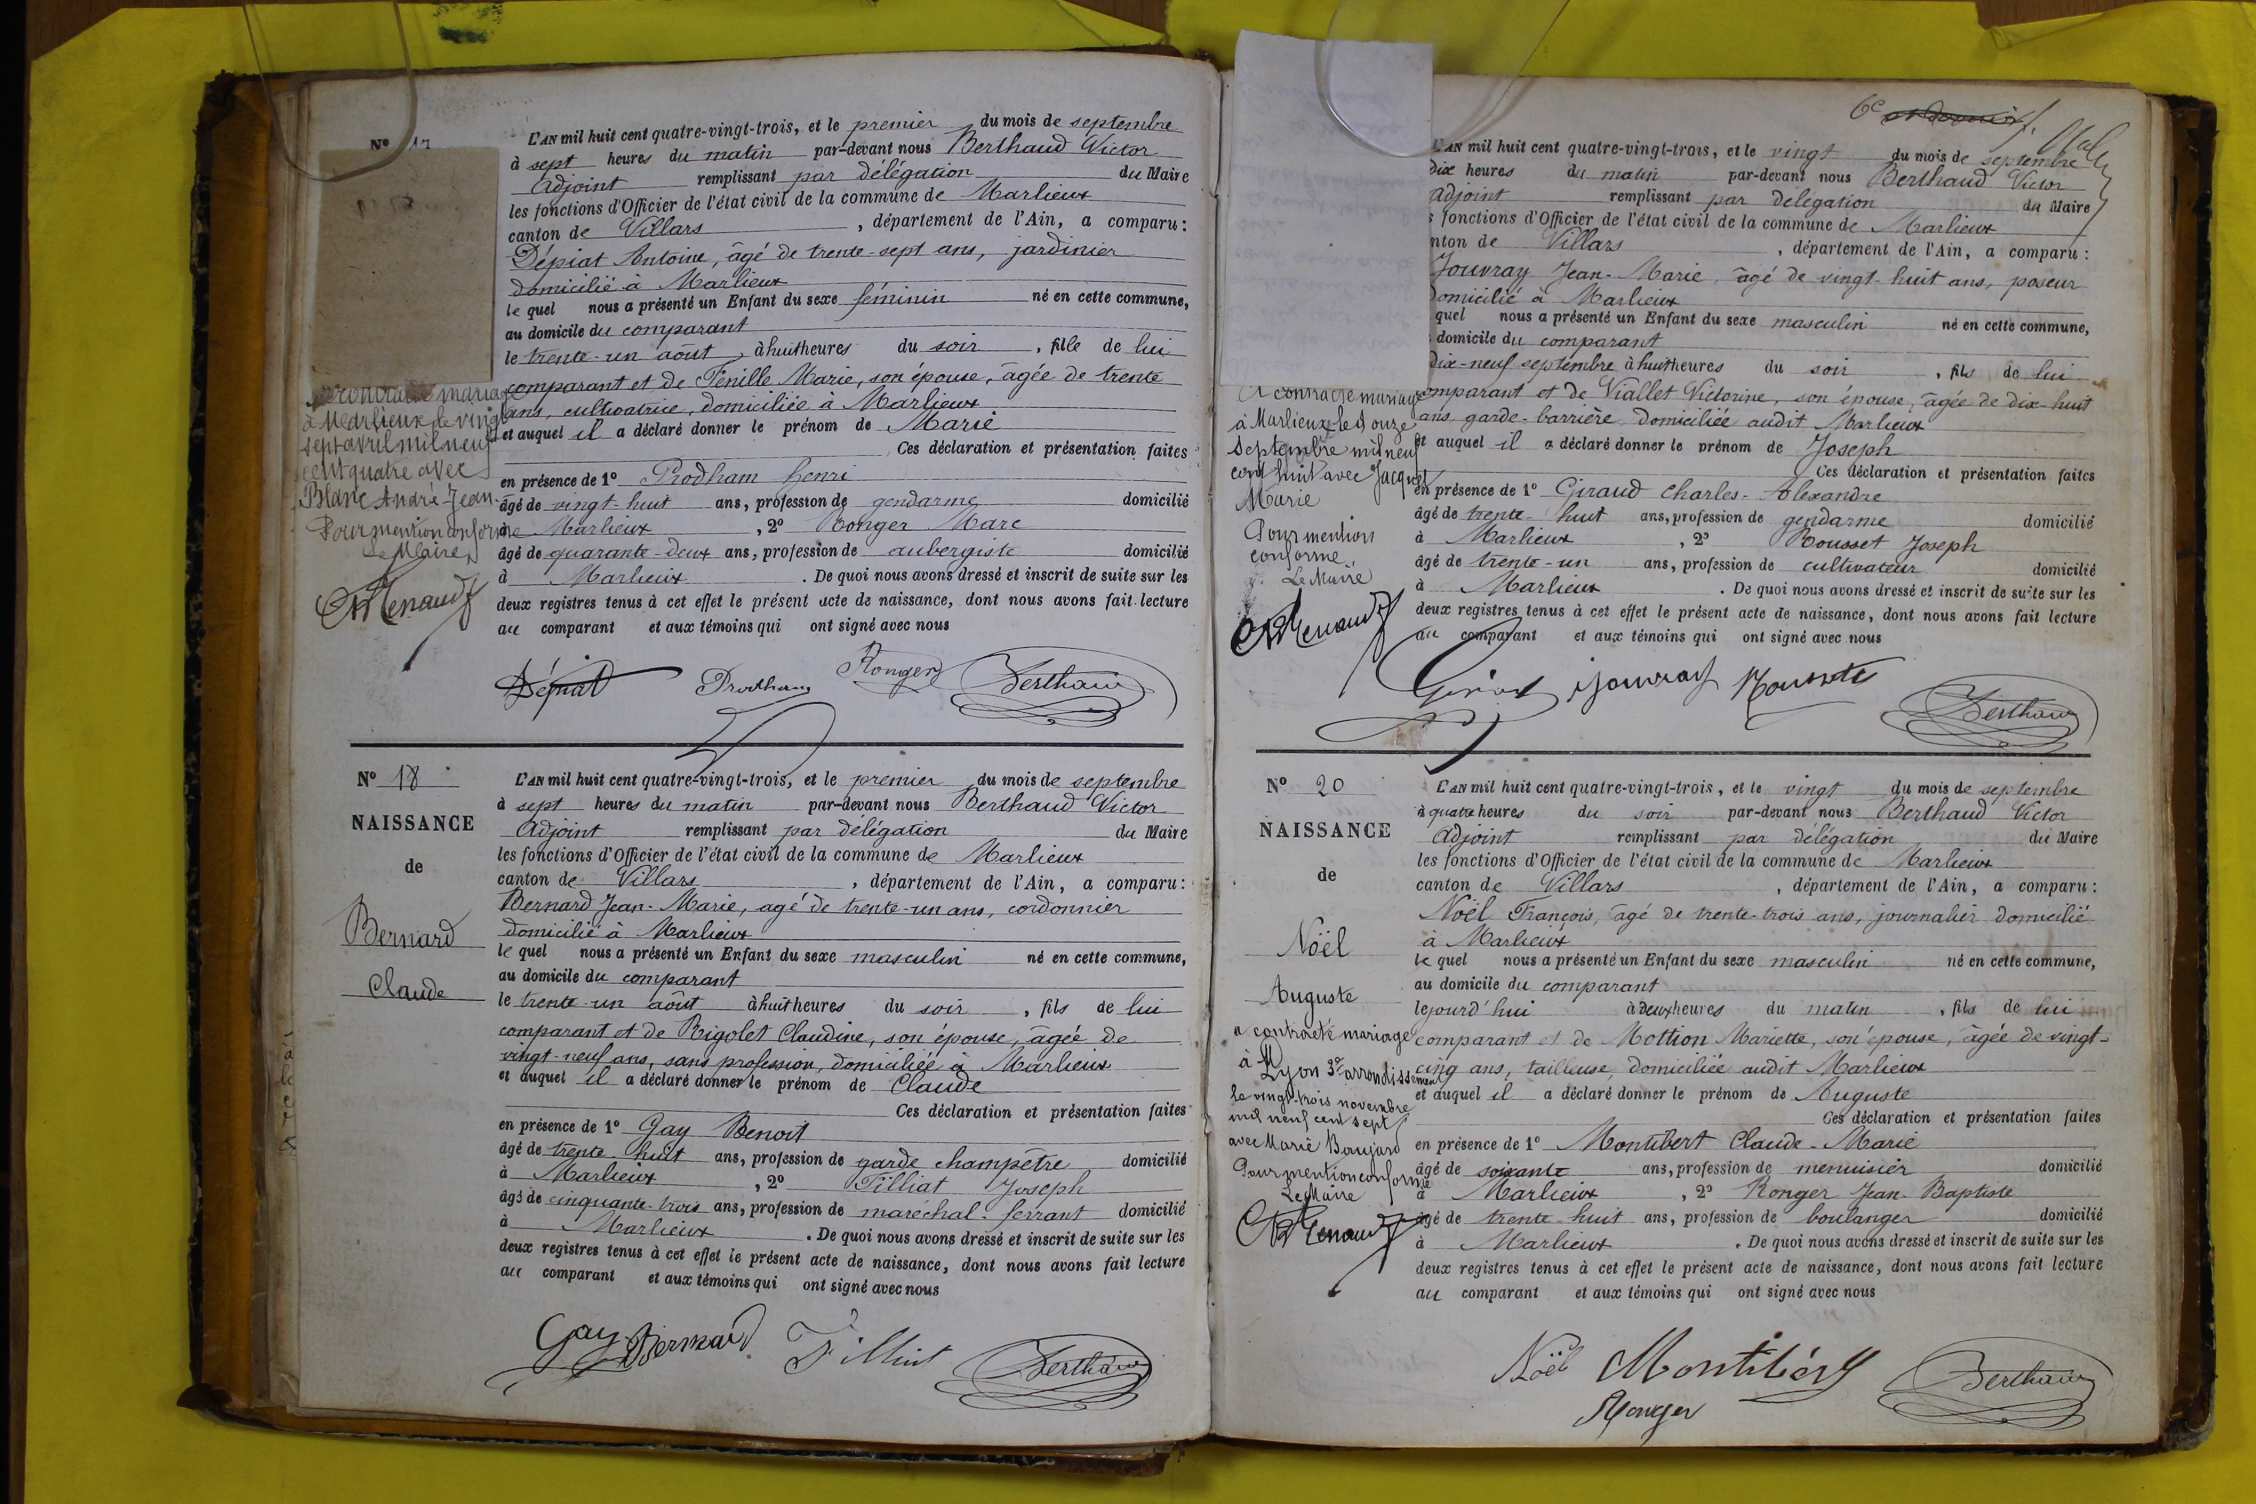 L'AN mil huit cent quatre-vingt-trois, et le premier du mois de septembre
à sept heures du matin par-devant nous Berthaud Victor
Adjoint remplissant par délégation du Maire
les fonctions d'Officier de l'état civil de la commune de Marlieux
canton de Villars, département de l'Ain, a comparu:
Dépiat Antoine, âgé de trente-sept ans, jardinier
domicilié à Marlieux
le quel nous a présenté un Enfant du sexe féminin né en cette commune,
au domicile du comparant
le trente-un août, à huit heures du soir, fille de lui
comparant et de Fenille Marie, son épouse, âgée de trente
ans, cultivatrice, domiciliée à Marlieux
et auquel il a déclaré donner le prénom de Marie
Ces déclaration et présentation faites
en présence de 1º Prodham henri
âgé de vingt-huit ans, profession de gendarme domicilié
à Marlieux, 2º Ronger Marc
âgé de quarante-deux ans, profession de aubergiste domicilié
à Marlieux. De quoi nous avons dressé et inscrit de suite sur les
deux registres tenus à cet effet le présent acte de naissance, dont nous avons fait lecture
au comparant et aux témoins qui ont signé avec nous
Nº 17
contracté mariage
à Marlieux le vingt
sept avril mil neuf
cent quatre avec
Blanc André-Jean
Pour mention conforme
Le Maire
Dépiat Prodham Ronger Berthaud
Nº 18
NAISSANCE
de
Bernard
Claude
L'AN mil huit cent quatre-vingt-trois, et le premier du mois de septembre
à sept heures du matin par-devant nous Berthaud Victor
Adjoint remplissant par délégation du Maire
les fonctions d'Officier de l'état civil de la commune de Marlieux
canton de Villars, département de l'Ain, a comparu:
Bernard Jean-Marie, agé de trente-un ans, cordonnier
domicilié à Marlieux
le quel nous a présenté un Enfant du sexe masculin né en cette commune,
au domicile du comparant
le trente-un août à huit heures du soir, fils de lui
comparant et de Rigolet Claudine, son épouse, âgée de
vingt-neuf ans, sans profession, domiciliée à Marlieux
et auquel il a déclaré donner le prénom de Claude
Ces déclaration et présentation faites
en présence de 1º Gay Benoit
âgé de trente-huit ans, profession de garde champêtre domicilié
à Marlieux, 2º Tilliat Joseph
âgé de cinquante-trois ans, profession de maréchal-ferrant domicilié
à Marlieux. De quoi nous avons dressé et inscrit de suite sur les
deux registres tenus à cet effet le présent acte de naissance, dont nous avons fait lecture
au comparant et aux témoins qui ont signé avec nous
Gay Bernard Tilliat Berthaud
6e
L'AN mil huit cent quatre-vingt-trois, et le vingt du mois de septembre
dix heures du matin par-devant nous Berthaud Victor
Adjoint remplissant par délégation du Maire
fonctions d'Officier de l'état civil de la commune de Marlieux
nton de Villars, département de l'Ain, a comparu:
Jouvray Jean-Marie, âgé de vingt-huit ans, poseur
domicilié à Marlieux
quel nous a présenté un Enfant du sexe masculin né en cette commune,
domicile du comparant
dix-neuf septembre à huit heures du soir, fils de lui
comparant et de Viallet Victorine, son épouse, âgée de dix-huit
ans garde-barrière domiciliée audit Marlieux
et auquel il a déclaré donner le prénom de Joseph
Ces déclaration et présentation faites
en présence de 1º Giraud Charles-Alexandre
âgé de trente-huit ans, profession de gendarme domicilié
à Marlieux, 2º Rousset Joseph
âgé de trente-un ans, profession de cultivateur domicilié
à Marlieux. De quoi nous avons dressé et inscrit de suite sur les
deux registres tenus à cet effet le présent acte de naissance, dont nous avons fait lecture
au comparant et aux témoins qui ont signé avec nous
A contracté mariage
à Marlieux le douze
septembre mil neuf
cent huit avec Jacquet
Marie
Pour mention
conforme
Le Maire
Jouvray Berthaud
Nº 20
NAISSANCE
de
Noël
Auguste
a contracté mariage
à Lyon 3e arrondissement
le vingt-trois novembre
mil neuf cent sept
avec Marie Boujard
Pour mention conforme
Le Maire
L'AN mil huit cent quatre-vingt-trois, et le vingt du mois de septembre
à quatre heures du soir par-devant nous Berthaud Victor
Adjoint remplissant par délégation du Maire
les fonctions d'Officier de l'état civil de la commune de Marlieux
canton de Villars, département de l'Ain, a comparu:
Noël François, âgé de trente-trois ans, journalier domicilié
à Marlieux
le quel nous a présenté un Enfant du sexe masculin né en cette commune,
au domicile du comparant
le jourd'hui à deux heures du matin, fils de lui
comparant et de Mottion Mariette, son épouse, âgée de vingt-
cinq ans, tailleuse, domiciliée audit Marlieux
et auquel il a déclaré donner le prénom de Auguste
Ces déclaration et présentation faites
en présence de 1º Montibert Claude-Marie
âgé de soixante ans, profession de menuisier domicilié
à Marlieux, 2º Ronger Jean-Baptiste
âgé de trente-huit ans, profession de boulanger domicilié
à Marlieux. De quoi nous avons dressé et inscrit de suite sur les
deux registres tenus à cet effet le présent acte de naissance, dont nous avons fait lecture
au comparant et aux témoins qui ont signé avec nous
Noël Montibert Berthaud
Ronger